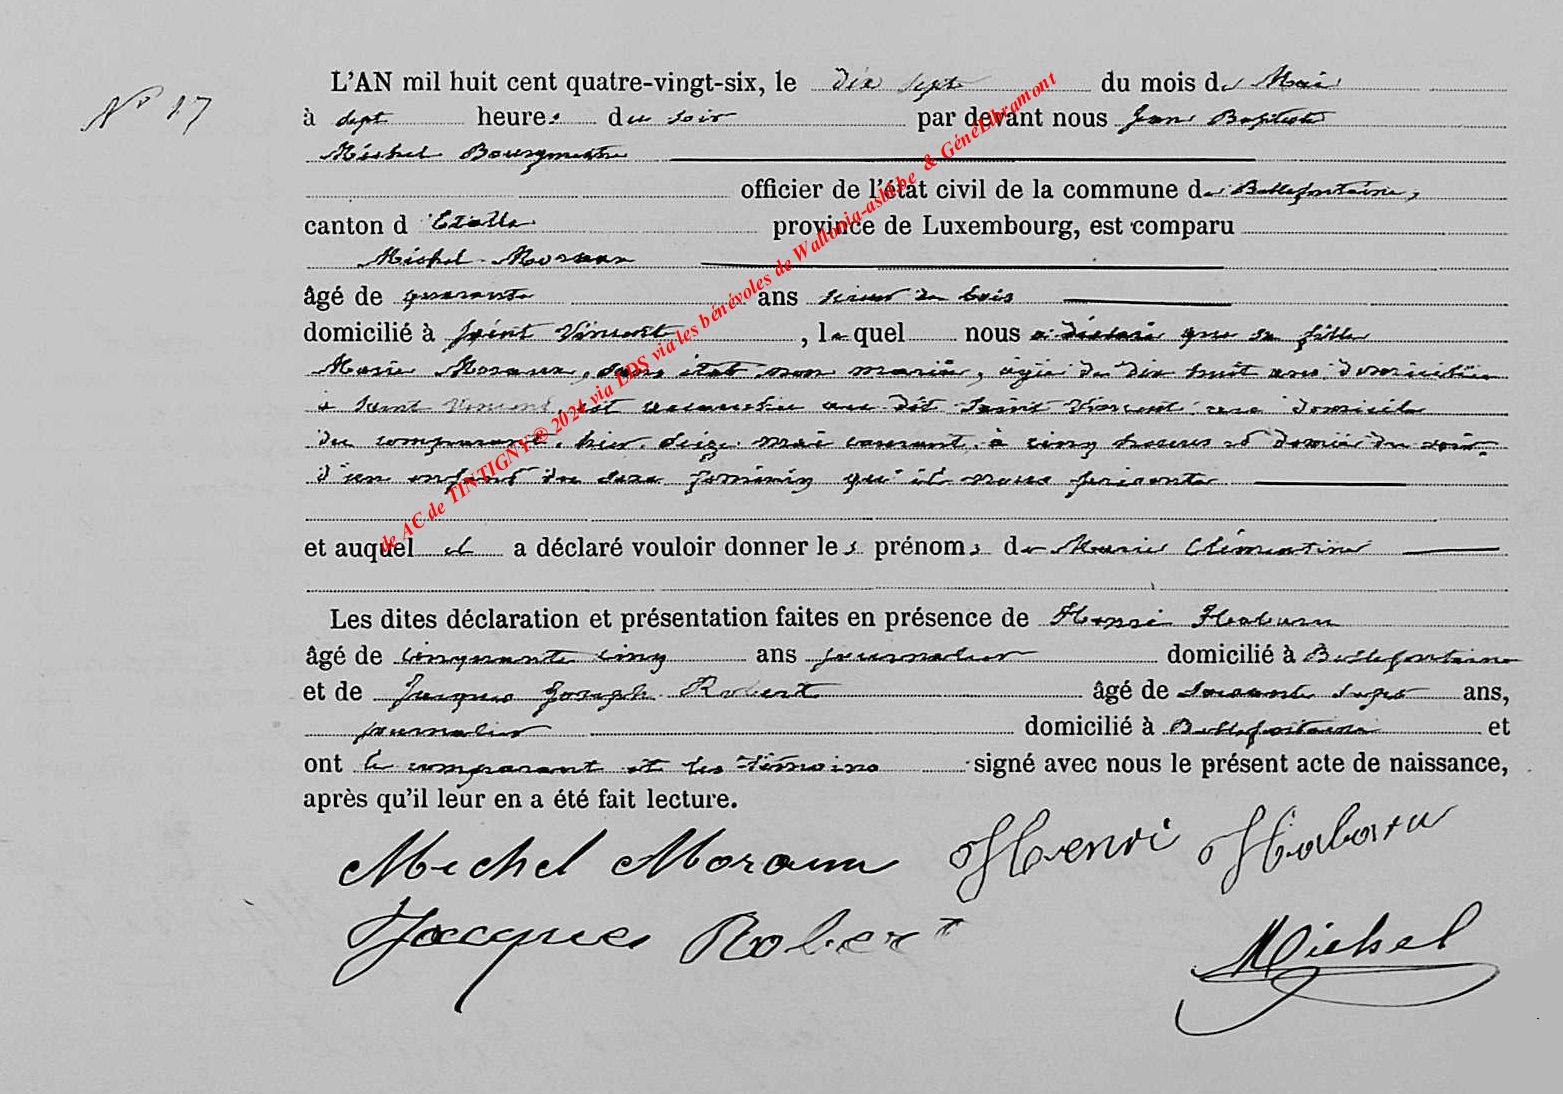 N° 17
L'AN mil huit cent quatre-vingt-six, le dix sept du mois de Mai
à sept heures du soir par devant nous Jean Baptiste
Michel Bourgmestre
officier de l'état civil de la commune de Bellefontaine,
canton d'Etalle province de Luxembourg, est comparu
Michel Moraux
âgé de quarante ans scieur de bois
domicilié à Saint Vincent, lequel nous a déclaré que sa fille
Marie Moraux, sans état non mariée, agée de dix huit ans domiciliée
à Saint Vincent, est accouchée au dit Saint Vincent au domicile
du comparant, hier seize mai courant, à cinq heures et demie du soir
d'un enfant du sexe féminin qu'il nous présente
et auquel il a déclaré vouloir donner les prénoms de Marie Clémentine
Les dites déclaration et présentation faites en présence de Henri Habaru
âgé de cinquante cinq ans journalier domicilié à Bellefontaine
et de Jacques Joseph Robert âgé de soixante ans,
journalier domicilié à Bellefontaine et
ont le comparant et les témoins signé avec nous le présent acte de naissance,
après qu'il leur en a été fait lecture.
Michel Moraux Henri Habaru
Jacques Robert Michel
de AC de TINTIGNY® 2024 via LDS via les bénévoles de Wallonia-asbl.be & GénéLibramont